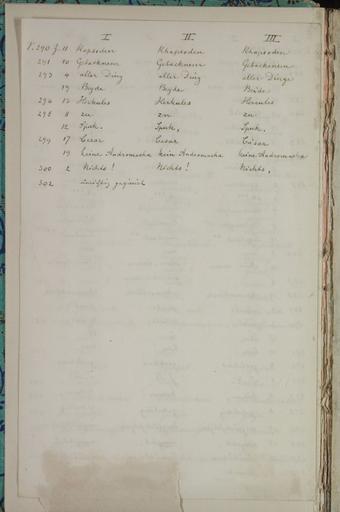 I II III
P. 290 Z. 11 Rhapsoden Rhapsoden Rhapsoden
291 10 Gebacknem Gebacknem Gebacknem
293 4 aller Ding aller Ding aller Dinge
19 Beyde Beyde Beide
294 12 Herkules Herkules Hercules
296 8 en en en
12 Spuk. Spuk. Spuk.
299 17 Cesar Cesar Cäsar
19 keine Andromacha kein Andromacha keine Andromacha
300 2 Nichts! Nichts! Nichts.
302